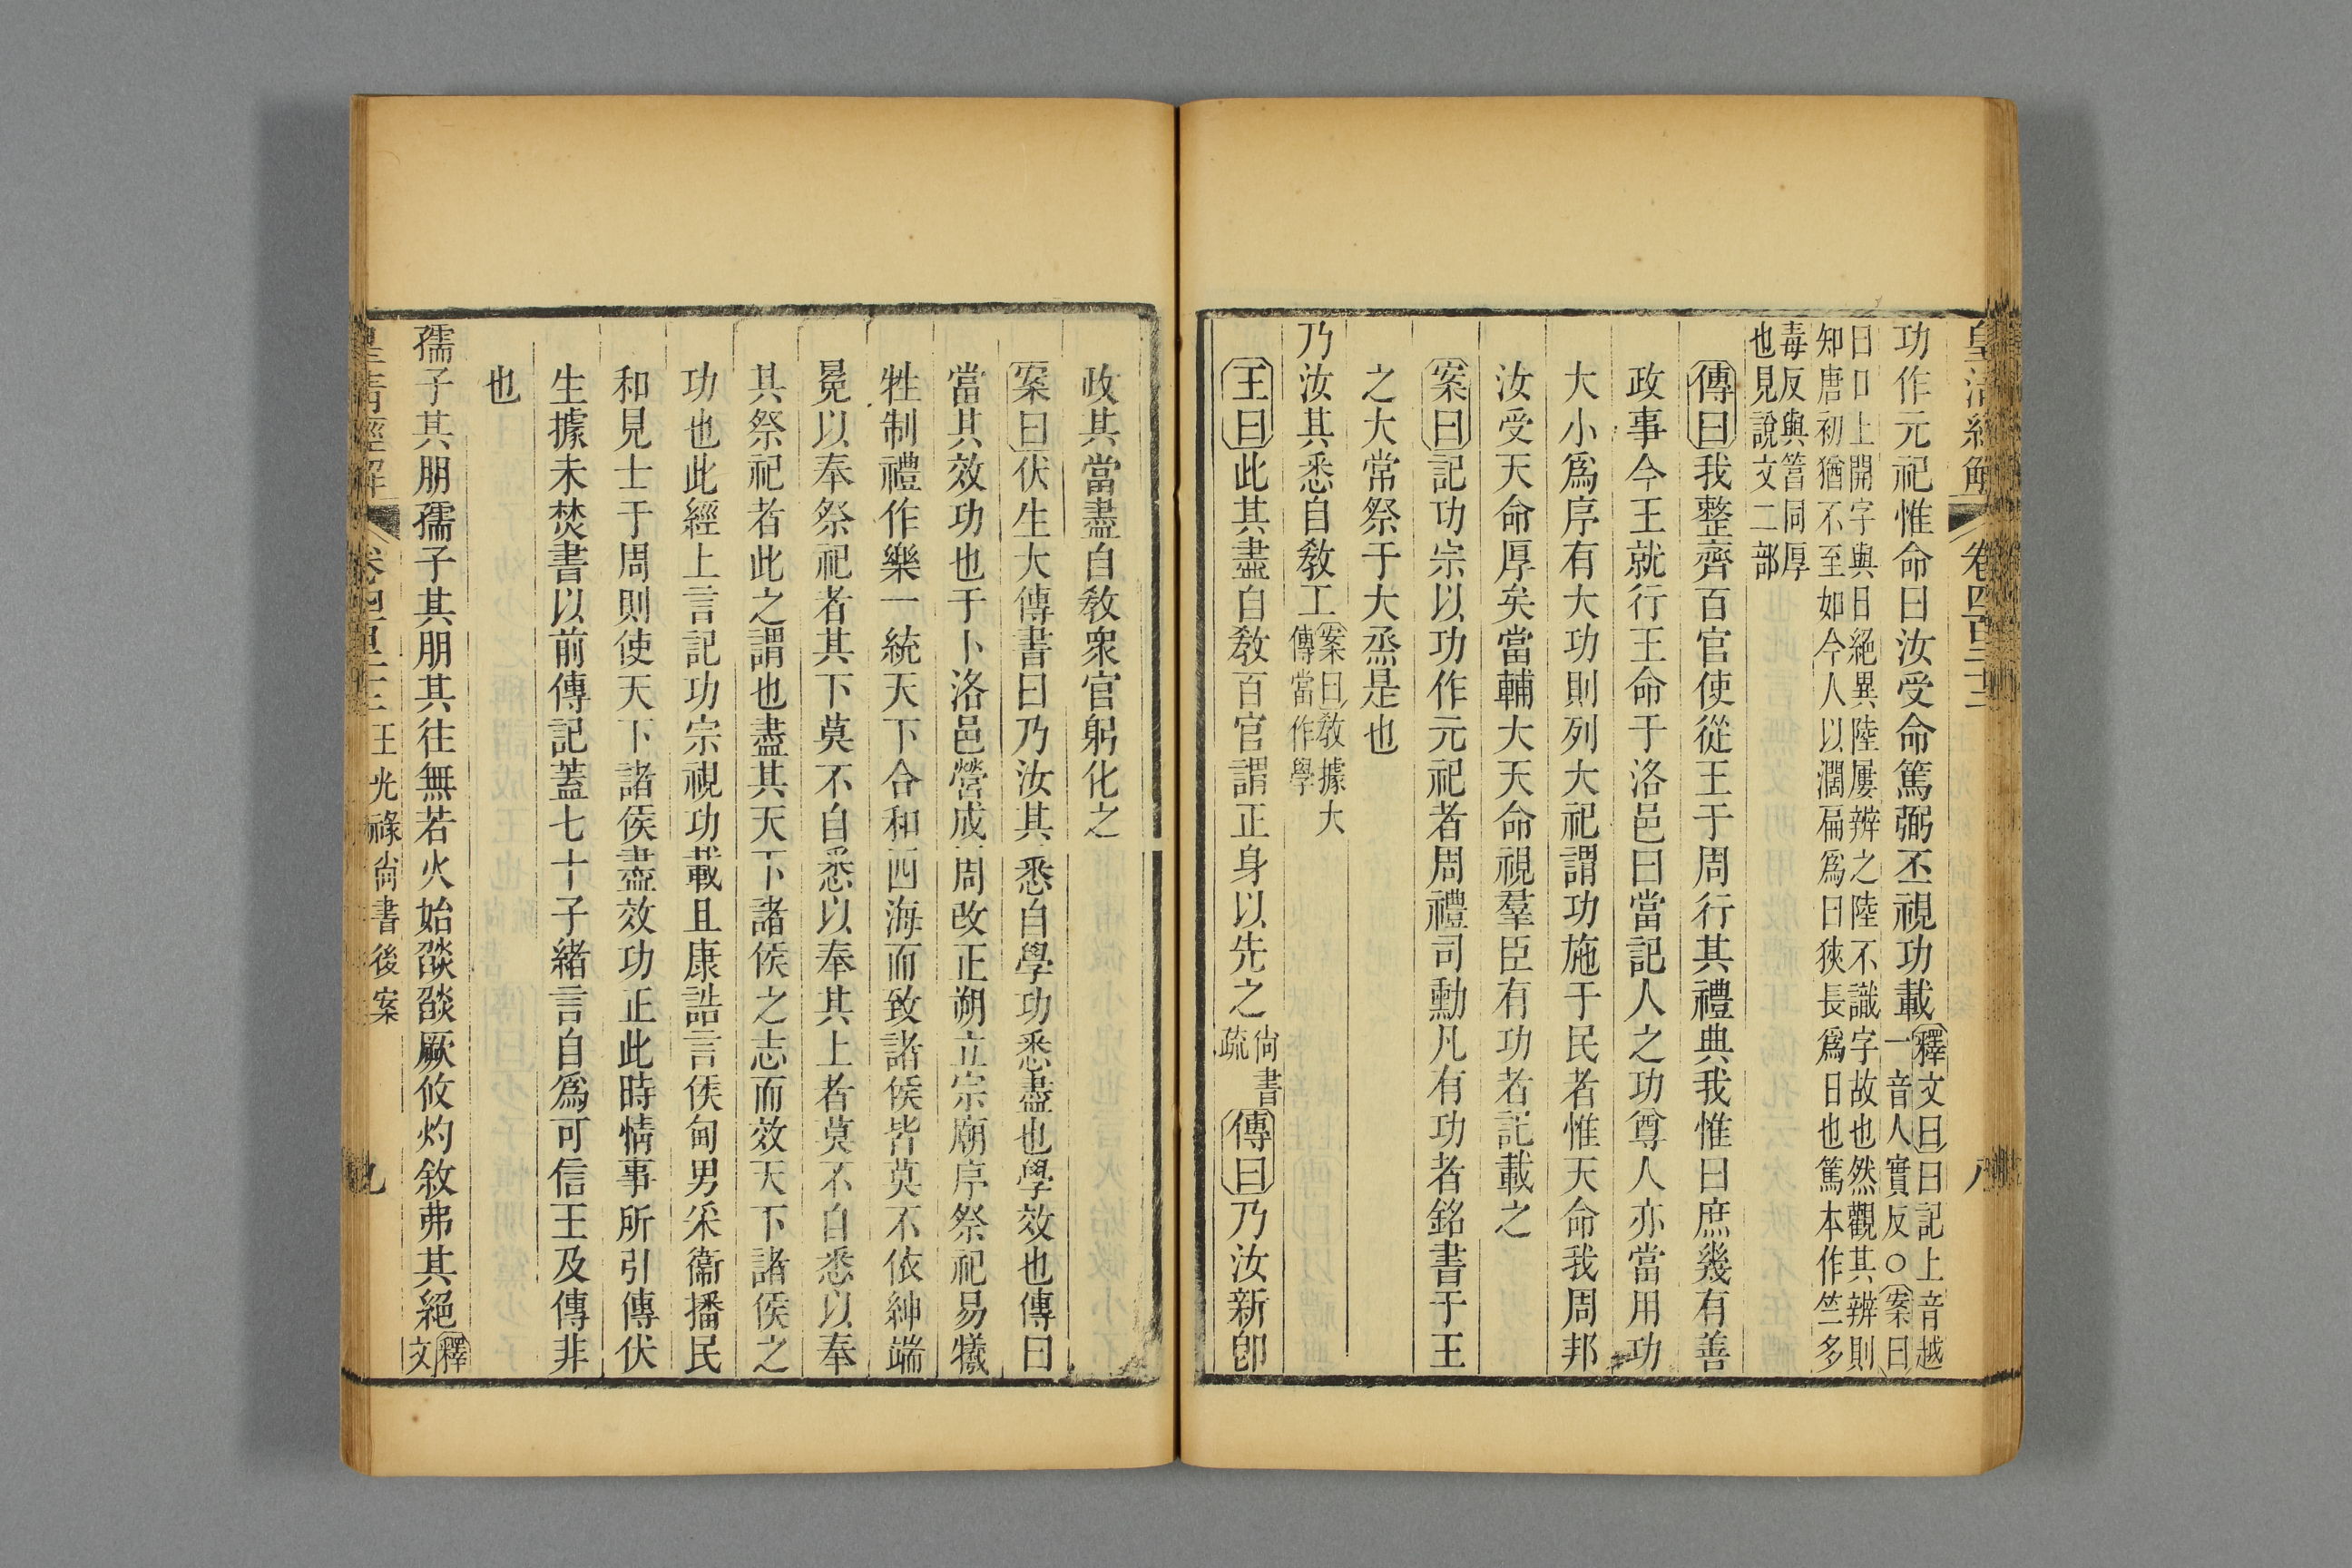 皇清經解 卷四百二十二 八
功作元祀惟命曰汝受命篤弼丕視功載釋文曰曰記上音越一音人實反○案曰
曰口上開字與日絕異陸屢辨之陸不識字故也然觀其辨則
知唐初猶不至如今人以濶扁爲曰狹長爲日也篤本作竺多
毒反與筥同厚
也見說文二部
傳曰我整齊百官使從王于周行其禮典我惟曰庶幾有善
政事今王就行王命于洛邑曰當記人之功尊人亦當用功
大小爲序有大功則列大祀謂功施于民者惟天命我周邦
汝受天命厚矣當輔大天命視羣臣有功者記載之
案曰記功宗以功作元祀者周禮司勳凡有功者銘書于王
之大常祭于大烝是也
乃汝其悉自敎工案曰敎據大傳當作學
王曰此其盡自敎百官謂正身以先之尙書疏傳曰乃汝新卽
政其當盡自敎衆官躬化之
案曰伏生大傳書曰乃汝其悉自學功悉盡也學效也傳曰
當其效功也于卜洛邑營成周改正朔立宗廟序祭祀易犧
牲制禮作樂一統天下合和四海而致諸侯皆莫不依紳端
冕以奉祭祀者其下莫不自悉以奉其上者莫不自悉以奉
其祭祀者此之謂也盡其天下諸侯之志而效天下諸侯之
功也此經上言記功宗視功載且康誥言侯甸男采衞播民
和見士于周則使天下諸侯盡效功正此時情事所引傳伏
生據未焚書以前傳記蓋七十子緒言自爲可信王及傳非
也
孺子其朋孺子其朋其往無若火始燄燄厥攸灼敘弗其絕釋文
皇清經解 卷四百二十二 王光祿尙書後案 九